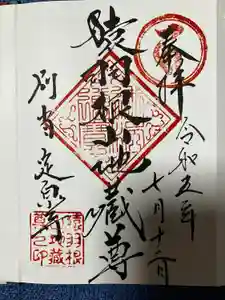 奉拝
令和五年
七月十二日
猿羽根山地蔵尊
別当 定泉寺
猿羽根
山地蔵
尊之印